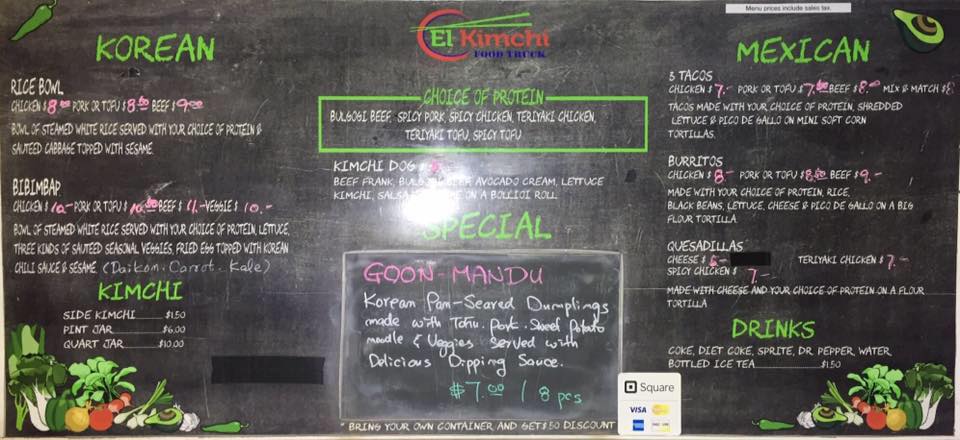 Menu prices include sales tax.
El Kimchi
FOOD TRUCK
KOREAN
RICE BOWL
CHICKEN $ 8.00 PORK OR TOFU $ 8.50 BEEF $ 9.00
BOWL OF STEAMED WHITE RICE SERVED WITH YOUR CHOICE OF PROTEIN &
SAUTEED CABBAGE TOPPED WITH SESAME.
BIBIMBAP
CHICKEN $ 10.- PORK OR TOFU $ 10.50 BEEF $ 11.- VEGGIE $ 10.-
BOWL OF STEAMED WHITE RICE SERVED WITH YOUR CHOICE OF PROTEIN, LETTUCE,
THREE KINDS OF SAUTEED SEASONAL VEGGIES, FRIED EGG TOPPED WITH KOREAN
CHILI SAUCE & SESAME. (Daikon. Carrot. Kale)
KIMCHI
SIDE KIMCHI $1.50
PINT JAR $6.00
QUART JAR $10.00
CHOICE OF PROTEIN
BULGOGI BEEF, SPICY PORK, SPICY CHICKEN, TERIYAKI CHICKEN,
TERIYAKI TOFU, SPICY TOFU
KIMCHI DOG $
BEEF FRANK, BULGOGI BEEF, AVOCADO CREAM, LETTUCE
KIMCHI, SALSA ON A BOLLIOI ROLL
SPECIAL
GOON-MANDU
Korean Pan-Seared Dumplings
made with Tofu. Pork. Sweet Potato
noodle & Veggies served with
Delicious Dipping Sauce.
$7.00 / 8 pcs
* BRING YOUR OWN CONTAINER AND GET $.50 DISCOUNT
MEXICAN
3 TACOS
CHICKEN $ 7.- PORK OR TOFU $ 7.50 BEEF $ 8.00 MIX & MATCH $8
TACOS MADE WITH YOUR CHOICE OF PROTEIN, SHREDDED
LETTUCE & PICO DE GALLO ON MINI SOFT CORN
TORTILLAS.
BURRITOS
CHICKEN $ 8- PORK OR TOFU $ 8.50 BEEF $ 9.-
MADE WITH YOUR CHOICE OF PROTEIN, RICE,
BLACK BEANS, LETTUCE, CHEESE & PICO DE GALLO ON A BIG
FLOUR TORTILLA.
QUESADILLAS
CHEESE $ 5- TERIYAKI CHICKEN $ 7.-
SPICY CHICKEN $ 7-
MADE WITH CHEESE AND YOUR CHOICE OF PROTEIN ON A FLOUR
TORTILLA
DRINKS
COKE, DIET COKE, SPRITE, DR. PEPPER, WATER
BOTTLED ICE TEA $1.50
Square
VISA